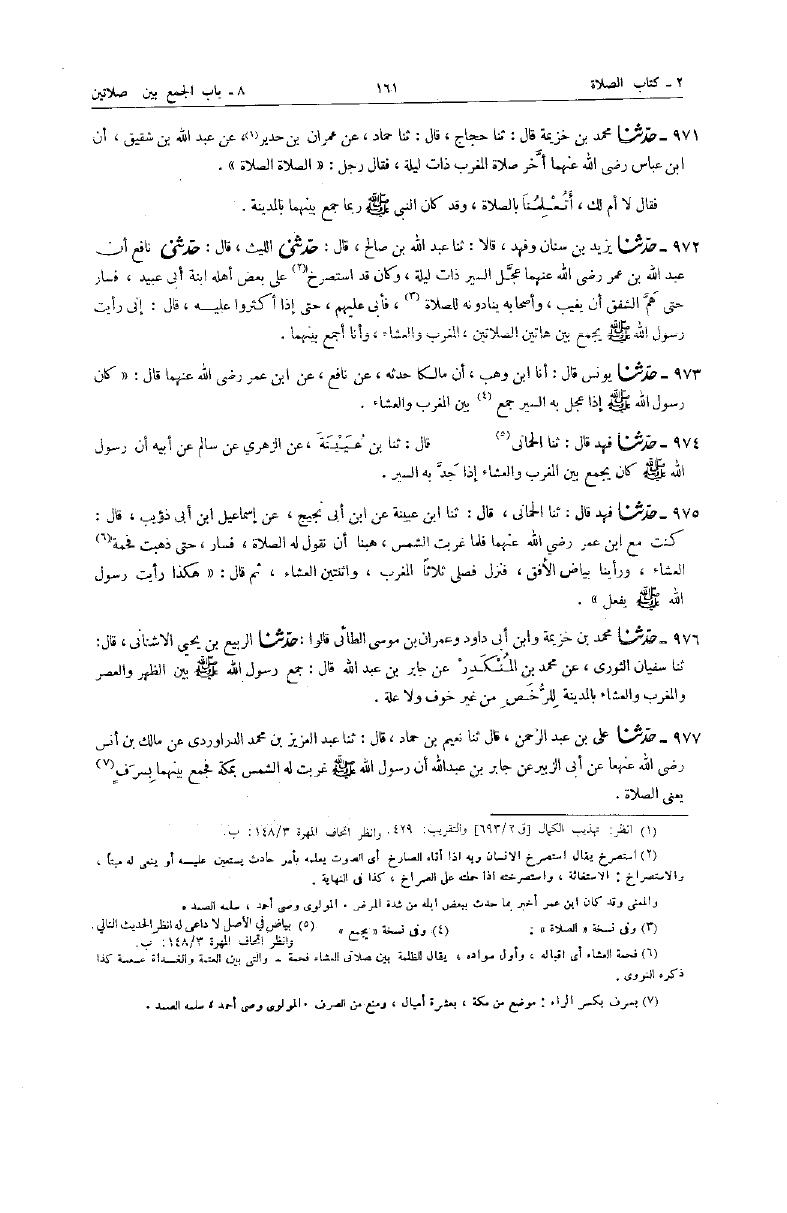 ٢ ـ كتاب الصلاة ١٦١ ٨ ـ باب الجمع بين صلاتين
٩٧١ ـ حدّثنا محمد بن خزيمة قال : ثنا حجاج ، قال : ثنا حماد ، عن عمران بن حدير(١)، عن عبد الله بن شقيق ، أن
ابن عباس رضى الله عنهما أخَّر صلاة المغرب ذات ليلة ، فقال رجل : « الصلاة الصلاة » .
فقال لا أم لك ، أَتُعْلِمُنَا بالصلاة ، وقد كان النبي ﷺ ربما جمع بينهما بالمدينة .
٩٧٢ ـ حدّثنا يزيد بن سنان وفهد ، قالا : ثنا عبد الله بن صالح ، قال : حدّثنى الليث ، قال : حدّثنى نافع أن
عبد الله بن عمر رضى الله عنهما عجَّل السير ذات ليلة ، وكان قد استصرخ(٢) على بعض أهله ابنة أبى عبيد ، فسار
حتى هَمَّ الشفق أن يغيب ، وأصحابه ينادونه للصلاة (٣) ، فأبى عليهم ، حتى إذا أكثروا عليـه ، قال : إنى رأيت
رسول الله ﷺ يجمع بين هاتين الصلاتين ، المغرب والعشاء ، وأنا أجمع بينهما .
٩٧٣ ـ حدّثنا يونس قال : أنا ابن وهب ، أن مالكا حدثه ، عن نافع ، عن ابن عمر رضى الله عنهما قال : « كان
رسول الله ﷺ إذا عجل به السير جمع (٤) بين المغرب والعشاء .
٩٧٤ ـ حدّثنا فهد قال : ثنا الحمانى (٥) قال : ثنا بن عُيَيْنَةَ ، عن الزهري عن سالم عن أبيه أن رسول
الله ﷺ كان يجمع بين المغرب والعشاء إذا جَدَّ به السير .
٩٧٥ ـ حدّثنا فهد قال : ثنا الحمانى ، قال : ثنا ابن عيينة عن ابن أبى نجيح ، عن إسماعيل ابن أبى ذؤيب ، قال :
كنت مع ابن عمر رضى الله عنهما فلما غربت الشمس ، هبنا أن نقول له الصلاة ، فسار ، حتى ذهبت فحمة(٦)
العشاء ، ورأينا بياض الأفق ، فنزل فصلى ثلاثاً المغرب ، واثنتين العشاء ، ثم قال : « هكذا رأيت رسول
الله ﷺ يفعل » .
٩٧٦ ـ حدّثنا محمد بن خزيمة وابن أبى داود وعمران بن موسى الطائى قالوا : حدّثنا الربيع بن يحيى الاشنانى ، قال:
ثنا سفيان الثورى ، عن محمد بن المُنْكَدِرِ عن جابر بن عبد الله قال : جمع رسول الله ﷺ بين الظهر والعصر
والمغرب والعشاء بالمدينة لِلرُّخَصِ من غير خوف ولا علة .
٩٧٧ ـ حدّثنا على بن عبد الرحمن ، قال ثنا نعيم بن حماد ، قال : ثنا عبد العزيز بن محمد الدراوردى عن مالك بن أنس
رضى الله عنهما عن أبى الزبير عن جابر بن عبدالله أن رسول الله ﷺ غربت له الشمس بمكة فجمع بينهما بِسَرَفٍ(٧)
يعنى الصلاة .
(١) انظر: تهذيب الكمال [ق٦٩٣/٢] والتقريب: ٤٢٩. وانظر اتحاف المهرة ١٤٨/٣: ب.
(٢) استصرخ يقال استصرخ الانسان وبه اذا أتاه الصارخ أى الصوت يعلمه بأمر حادث يستعين عليه أو ينعى له ميتاً ،
والاستصراخ : الاستغاثة ، واستصرخته اذا حملته على الصراخ ، كذا فى النهاية .
والمعنى وقد كان ابن عمر أخبر بما حدث ببعض اهله من شدة المرض . المولوى وصى أحمد ، سلمه الصمد .
(٣) وفى نسخة « الصلاة » : (٤) وفى نسخة « يجمع » (٥) بياض في الأصل لا داعى له انظر الحديث التالي.
وانظر اتحاف المهرة ١٤٨/٣: ب.
(٦) فحمة العشاء أى اقباله ، وأول سواده ، يقال للظلمة بين صلاتى العشاء فحمة ـ والتى بين العتمة والغداة عسعسة كذا
ذكره النووى .
(٧) بسرف بكسر الراء : موضع من مكة ، بعشرة أميال ، ومنع من الصرف . المولوى وصى أحمد ، سلمه الصمد .